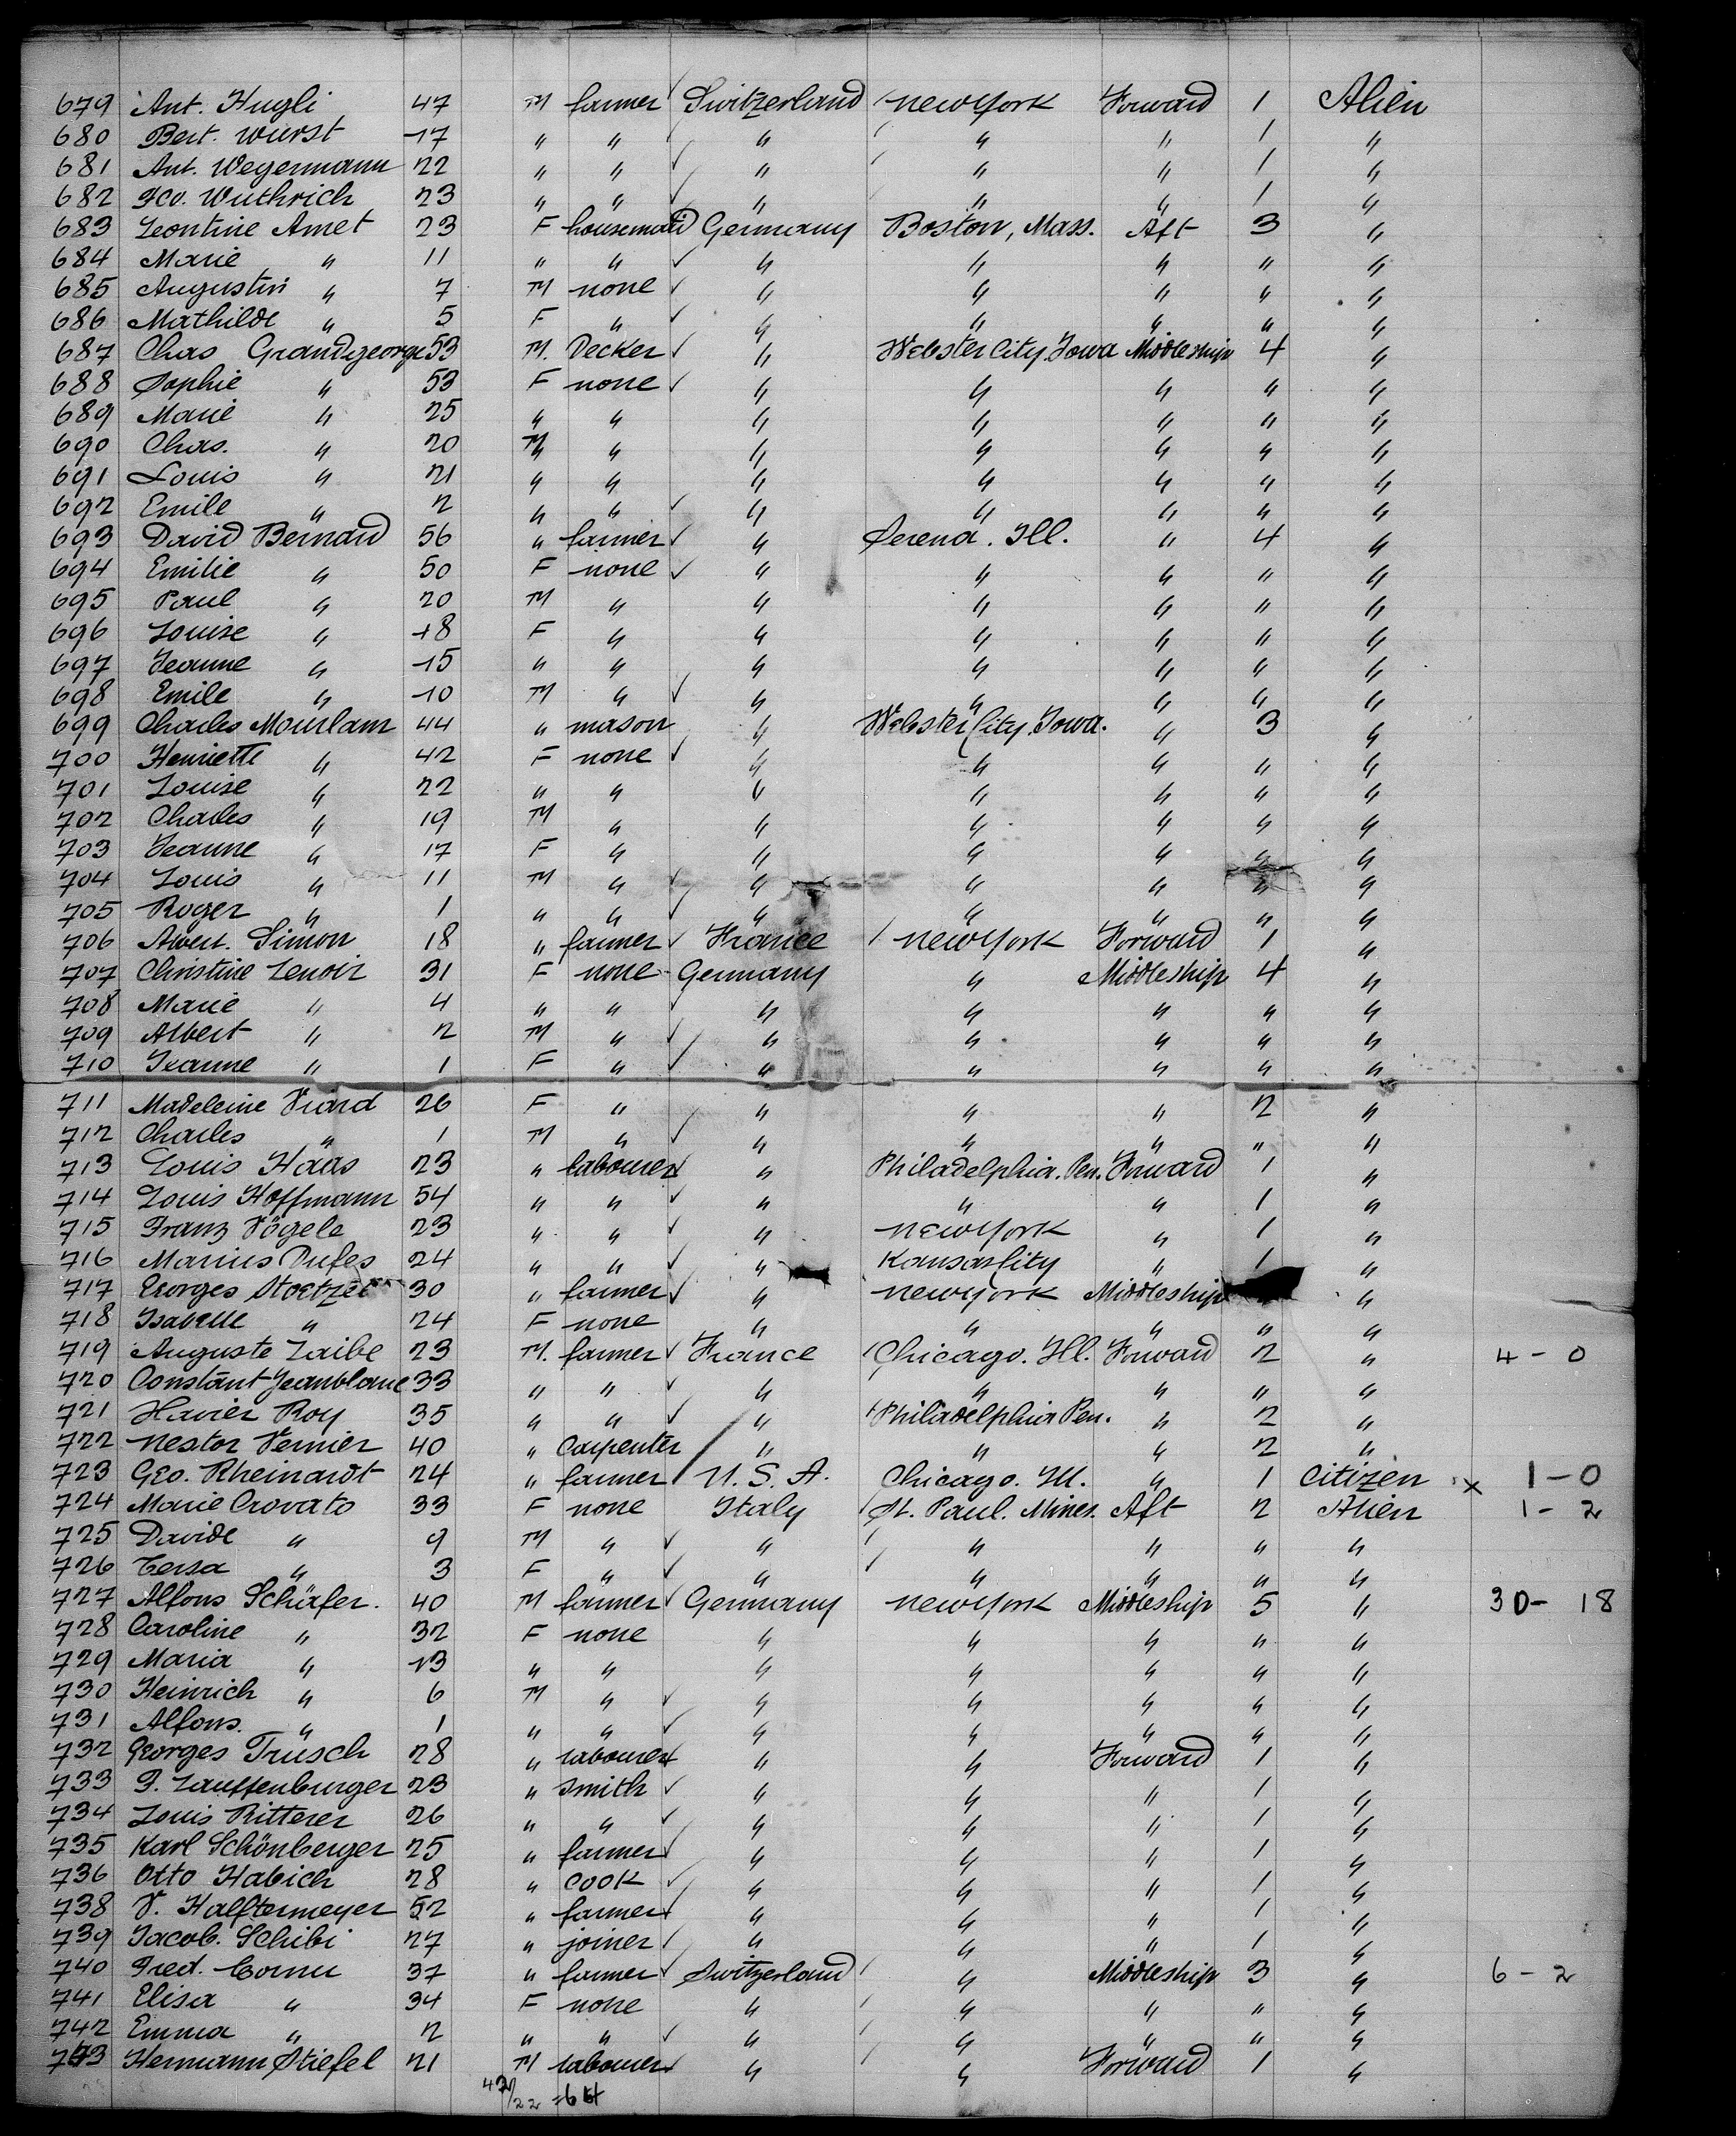 679 Ant. Hugli 47 M farmer Switzerland New York Forward 1 Alien
680 Bert. Wurst 17 " " " " " 1 "
681 Ant. Wegermann 22 " " " " " 1 "
682 Wuthrich 23 " " " " " 1 "
683 Leontine Amet 23 F housemaid Germany Boston, Mass. Aft 3 "
684 Marie " 11 " " " " " " "
685 Augustin " 7 M none " " " " "
686 Mathilde " 5 F " " " " " "
687 Chas Grandgeorge 53 M. Decker " Webster City Iowa Middleship 4 "
688 Sophie " 53 F none " " " " "
689 Marie " 25 " " " " " " "
690 Chas. " 20 M " " " " " "
691 Louis " 21 " " " " " " "
692 Emile " 2 " " " " " " "
693 David Bernard 56 " farmer " Serena. Ill. " 4 "
694 Emilie " 50 F none " " " " "
695 Paul " 20 M " " " " " "
696 Louise " 18 F " " " " " "
697 Jeanne " 15 " " " " " " "
698 Emile " 10 M " " " " " "
699 Charles Mourlam 44 " mason " Webster City. Iowa. " 3 "
700 Henriette " 42 F none " " " " "
701 Louise " 22 " " " " " " "
702 Charles " 19 M " " " " " "
703 Jeanne " 17 F " " " " " "
704 Louis " 11 M " " " " " "
705 Roger " 1 " " " " " " "
706 Albert. Simon 18 " farmer France New York Forward 1 "
707 Christine Lenoir 31 F none Germany " Middleship 4 "
708 Marie " 4 " " " " " " "
709 Albert " 2 M " " " " " "
710 Jeanne " 1 F " " " " " "
711 Madeleine Viard 26 F " " " " 2 "
712 Charles " 1 M " " " " " "
713 Louis Haas 23 " labourer " Philadelphia. Pen. Forward 1 "
714 Louis Hoffmann 54 " " " " " 1 "
715 Franz Vögele 23 " " " New York " 1 "
716 Marius Dufes 24 " " " Kansas City " 1 "
717 Georges Stoetzel 30 " farmer " New York Middleship "
718 Isabelle " 24 F none " " " " "
719 Auguste Laibe 23 M. farmer France Chicago. Ill. Forward 2 " 4 - 0
720 Constant Jeanblanc 33 " " " " " " "
721 Xavier Roy 35 " " " Philadelphia Pen. " 2 "
722 Nestor Vernier 40 " Carpenter " " " 2 "
723 Geo. Rheinardt 24 " farmer U. S. A. Chicago. Ill. " 1 Citizen x 1 - 0
724 Marie Crovato 33 F none Italy St. Paul. Mines. Aft 2 Alien 1 - 2
725 Davide " 9 M " " " " " "
726 Tersa " 3 F " " " " " "
727 Alfons Schäfer. 40 M farmer Germany New York Middleship 5 " 30 - 18
728 Caroline " 32 F none " " " " "
729 Maria " 13 " " " " " " "
730 Heinrich " 6 M " " " " " "
731 Alfons. " 1 " " " " " " "
732 Georges Trusch 28 " labourer " " Forward 1 "
733 P. Lauffenburger 23 " Smith " " " 1 "
734 Louis Ritterer 26 " " " " " 1 "
735 Karl Schönberger 25 " farmer " " " 1 "
736 Otto Habich 28 " Cook " " " 1 "
738 V. Halftermeyer 52 " farmer " " " 1 "
739 Jacob. Schibi 27 " joiner " " " 1 "
740 Fred. Cornu 37 " farmer Switzerland " Middleship 3 " 6 - 2
741 Elisa " 34 F none " " " " "
742 Emma " 2 " " " " " " "
743 Hermann Stiefel 21 M labourer " " Forward 1 "
42/22 = 64